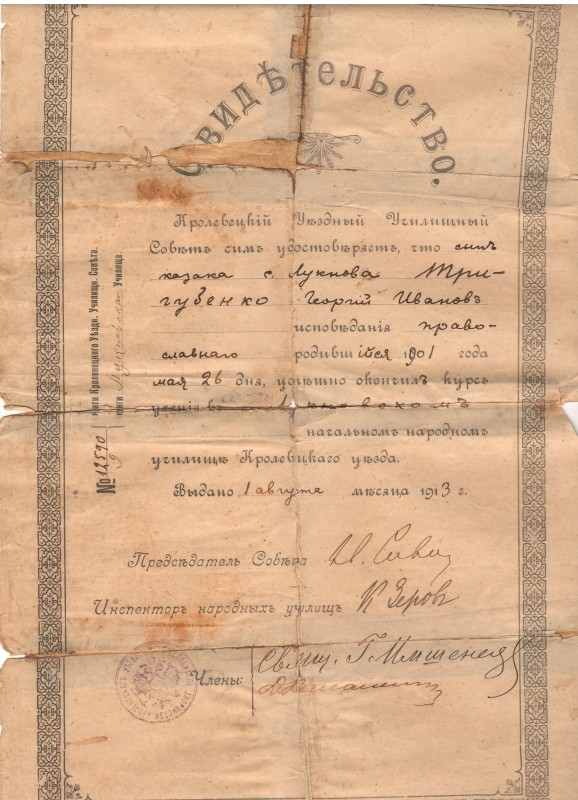 Свидѣтельство.
Кролевецкій Уѣздный Училищный
Совѣтъ симъ удостовѣряетъ, что сынъ
козака с. Лукнова Три-
губенко Георгій Ивановъ
исповѣданія право-
славнаго родившійся 1901 года
мая 26 дня, успѣшно окончилъ курсъ
ученія въ Лукновскомъ
начальномъ народномъ
училищѣ Кролевецкаго уѣзда.
Выдано 1 августа мѣсяца 1913 г.
Предсѣдатель Совѣта
Инспекторъ народныхъ училищъ К Зеровъ
Члены: Свящ. Г. Имшенец
№ 12590 книги Кролевецкаго Уѣздн. Училищн. Совѣта.
9 книги Лукновскаго Училища.